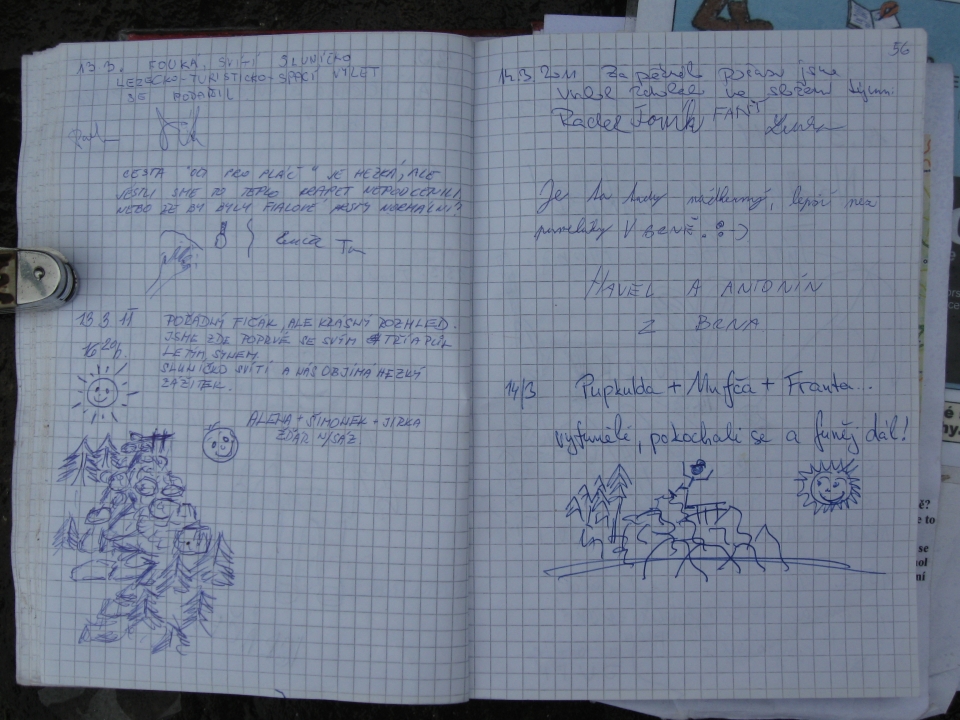 13.3. FOUKÁ, SVÍTÍ SLUNÍČKO
LEZECKO-TURISTICKO-SPACÍ VÝLET
SE PODAŘIL
CESTA "OČI PRO PLÁČ" JE HEZKÁ, ALE
JESTLI SME TO TEPLO NEPODCENILI,
NEBO ŽE BY BYLY FIALOVÉ PRSTY NORMÁLNÍ?
13.3.11 POŘÁDNÝ FIČÁK, ALE KRÁSNÝ ROZHLED.
16 20 h. JSME ZDE POPRVÉ SE SVÝM TŘÍ A PŮL
LETÝM SYNEM.
SLUNÍČKO SVÍTÍ A NÁS OBJÍMÁ HEZKÝ
ZÁŽITEK.
ALENA + ŠIMONEK + JIRKA
ŽĎÁR N/SÁZ
56
14.3.2011 Za počasí jsme
ve složení
Radek FANT
Je to tady nádherný, lepší než
paneláky V BRNĚ. :)
HAVEL A ANTONÍN
Z BRNA
14/3 Pupkulda + Mufča + Franta...
vyfuněli, pokochali se a funěj dál!
ě?
e to
se
nol
ní